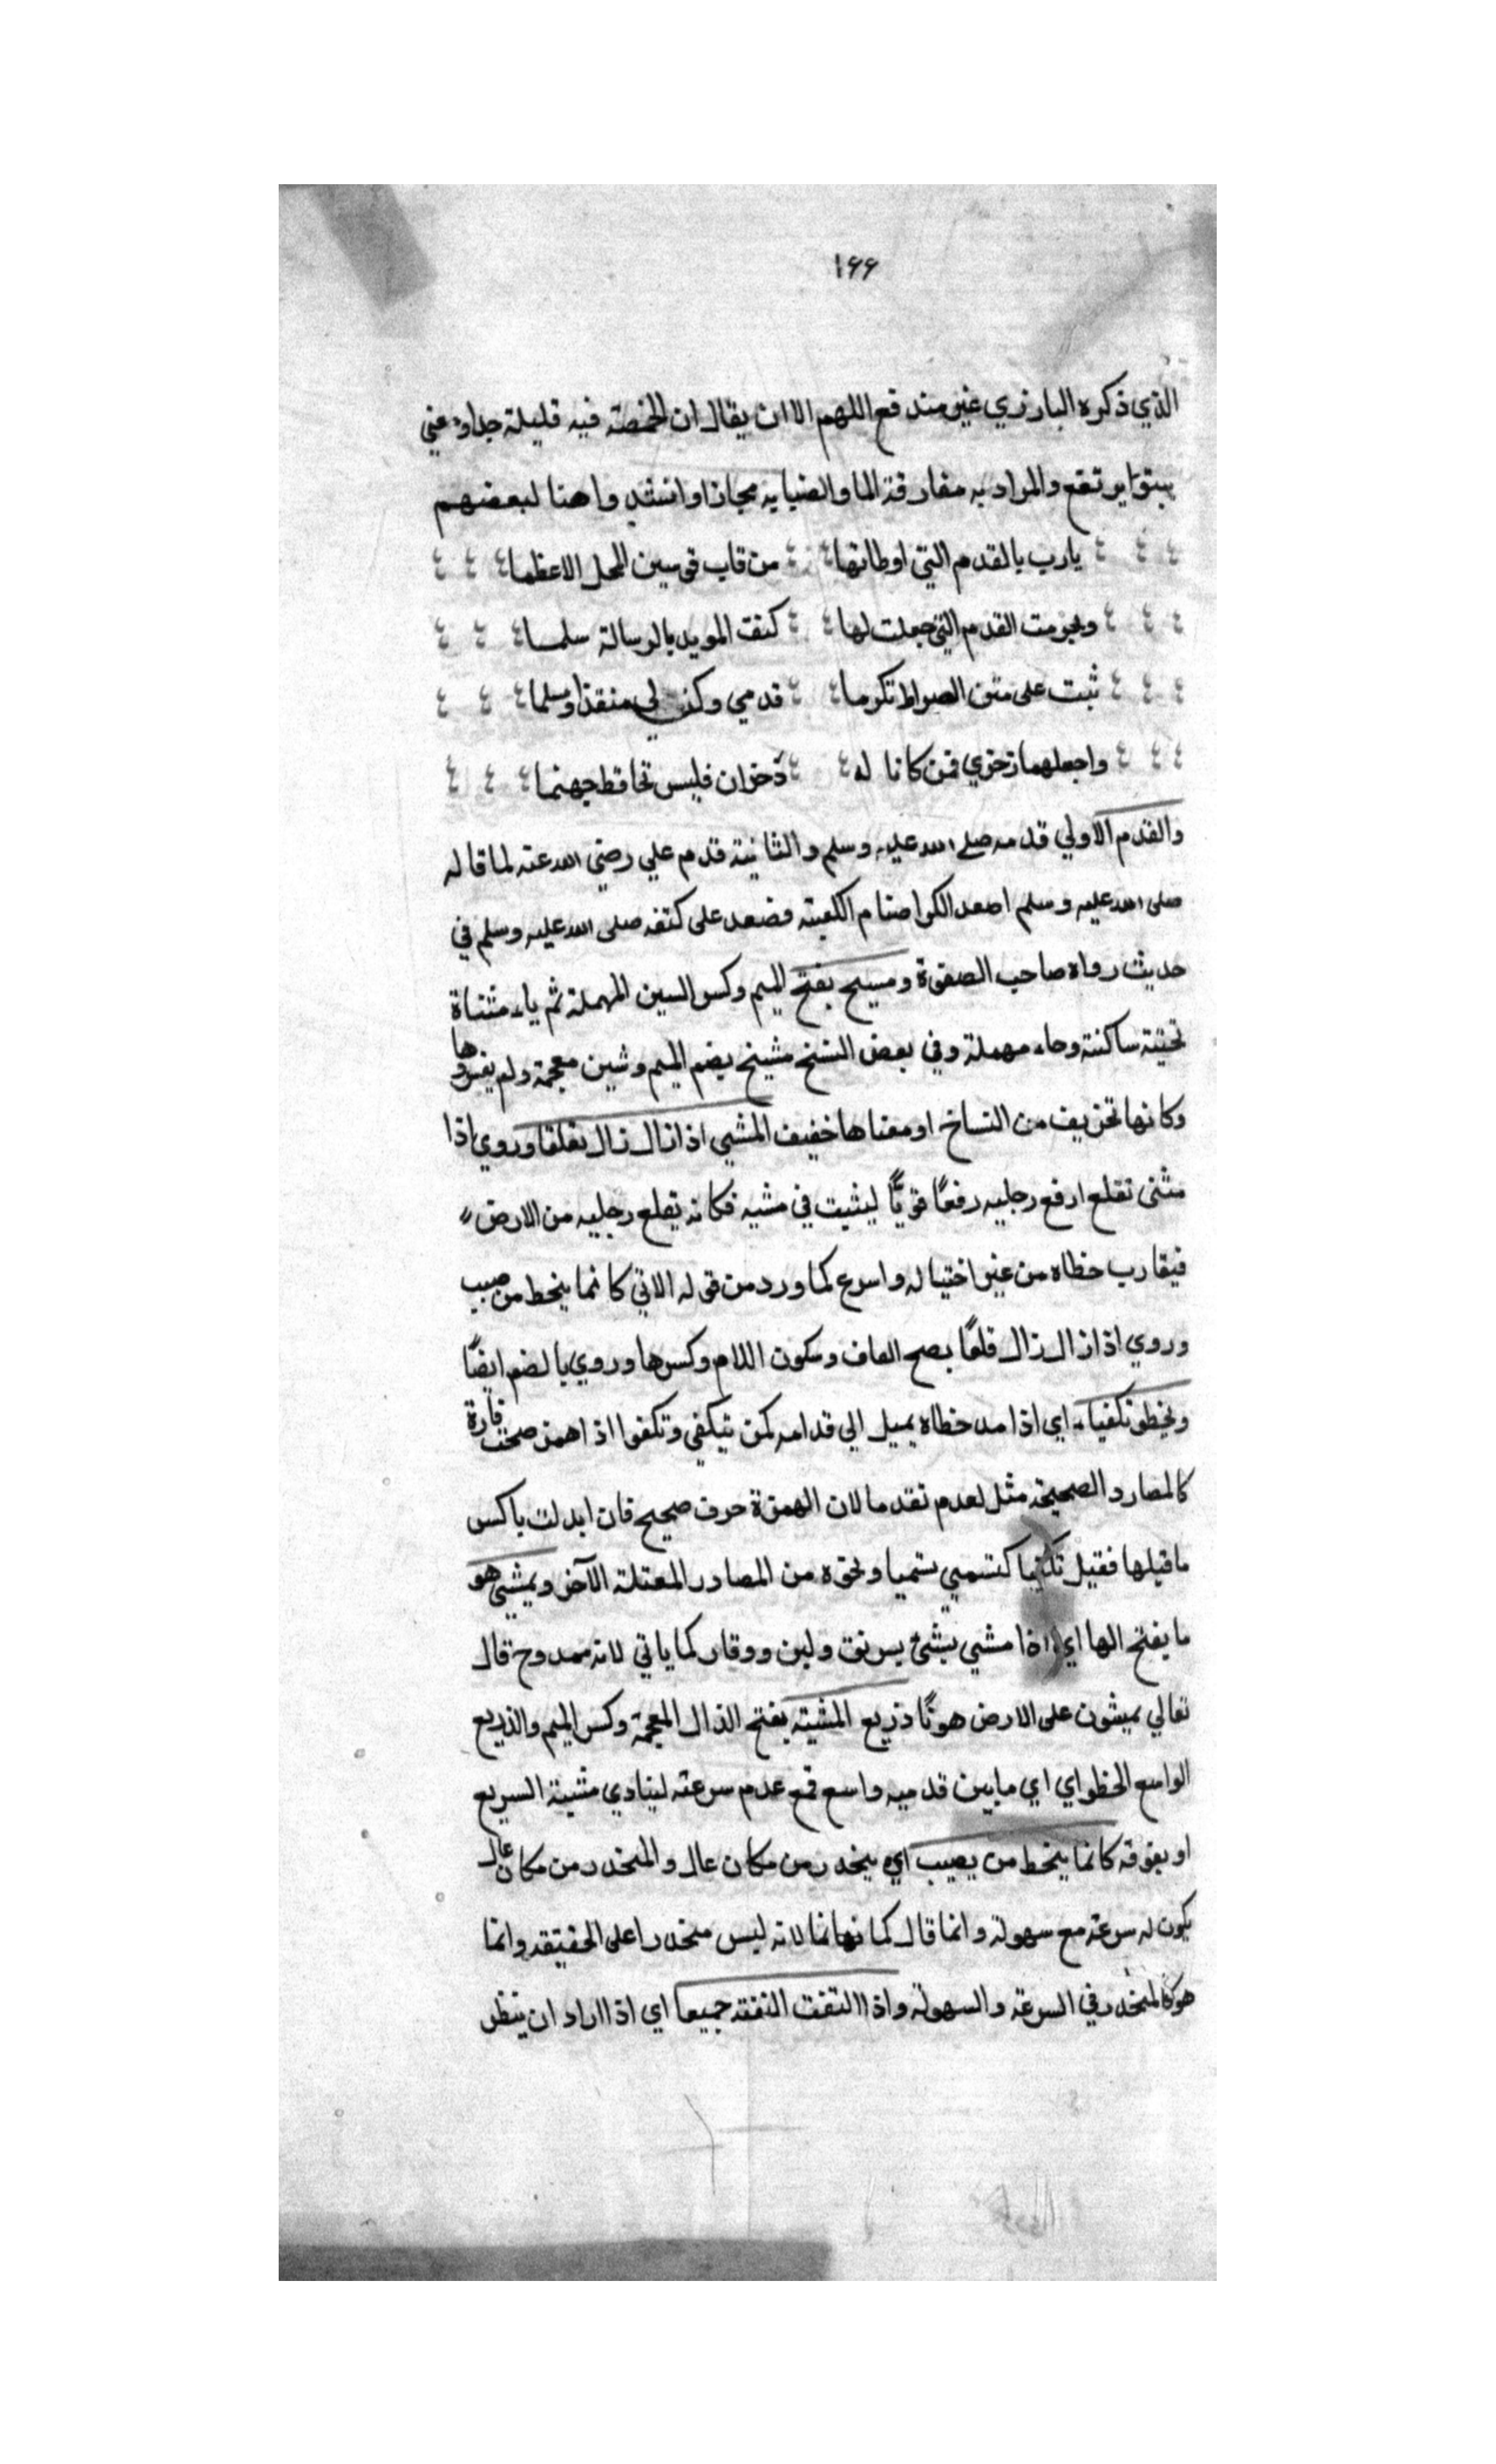 ١٦٦
الذي ذكره البارزي غير مندفع اللهم الا ان يقال ان الخمصة فيه قليلة جدا ومعني
ينبوا يرتفع والمراد به مفارقة الما وانشدوا هنا لبعضهم
يا رب بالقدم التي اوطاتها من قاب قوسين المحل الاعظما
وبحرمت القدم التي جعلت لها كتف المويد بالرسالة سلما
ثبت على متن الصراط تكرما قدمي وكن لي منقذا ومسلما
واجعلهما ذخري فمن كانا له ذخران فليس تخاف قط جهنما
والقدم الاولي قدمه صلى الله عليه وسلم والثانية قدم علي رضي الله عنه لما قال له
صلى الله عليه وسلم اصعد اكسر اصنام الكعبة فصعد على كتفه صلى الله عليه وسلم في
حديث رواه صاحب الصفوة ومسيح بفتح الميم وكسر السين المهملة ثم ياء مثناة
تحتية ساكنة وحاء مهملة وفي بعض النسخ مشيخ بضم الميم وشين معجمة ولم يفسروها
وكانها تحريف من النساخ او معناها خفيف المشي اذا زال زال تقلعا وروي اذا
مشى تقلع ارفع رجليه رفعًا قويًّا ليثبت في مشيه فكانه يقلع رجليه من الارض
فيقارب خطاه من غير اختيال واسرع كما ورد من قوله الاتي كانما ينحط من صبب
وروي اذا زال زال قلعًا بفتح القاف وسكون اللام وكسرها وروي بالضم ايضًا
ويخطو تكفياء اي اذا مد خطاه يميل الي قدامه كمن يتكفي وتكفوا اذا همز صحت فارة
كالمصادر الصحيحة مثل لعدم تقدما لان الهمزة حرف صحيح فان ابدلت يا كسر
ما قبلها فقيل تكفيا كتسمي تسميا ونحوه من المصادر المعتلة الآخر ويمشي هو
ما بفتح الها اي اذا مشي يمشي برفق ولين ووقار كما ياتي لانه ممدوح قال
تعالي يمشون على الارض هونًا ذريع المشية بفتح الذال المعجمة وكسر الميم والذريع
الواسع الخطو اي اي ما بين قدميه واسع فمع عدم سرعته لينادي مشية السريع
او يفوقه كانما ينحط من يصبب اي ينحدر من مكان عال والمنحدر من مكان عال
يكون له سرعة مع سهولة وانما قال كما نهانما لانه ليس منحدرا على الحقيقة وانما
هو كالمنحدر في السرعة والسهولة واذا التفت التفت جميعا اي اذا اراد ان ينظر